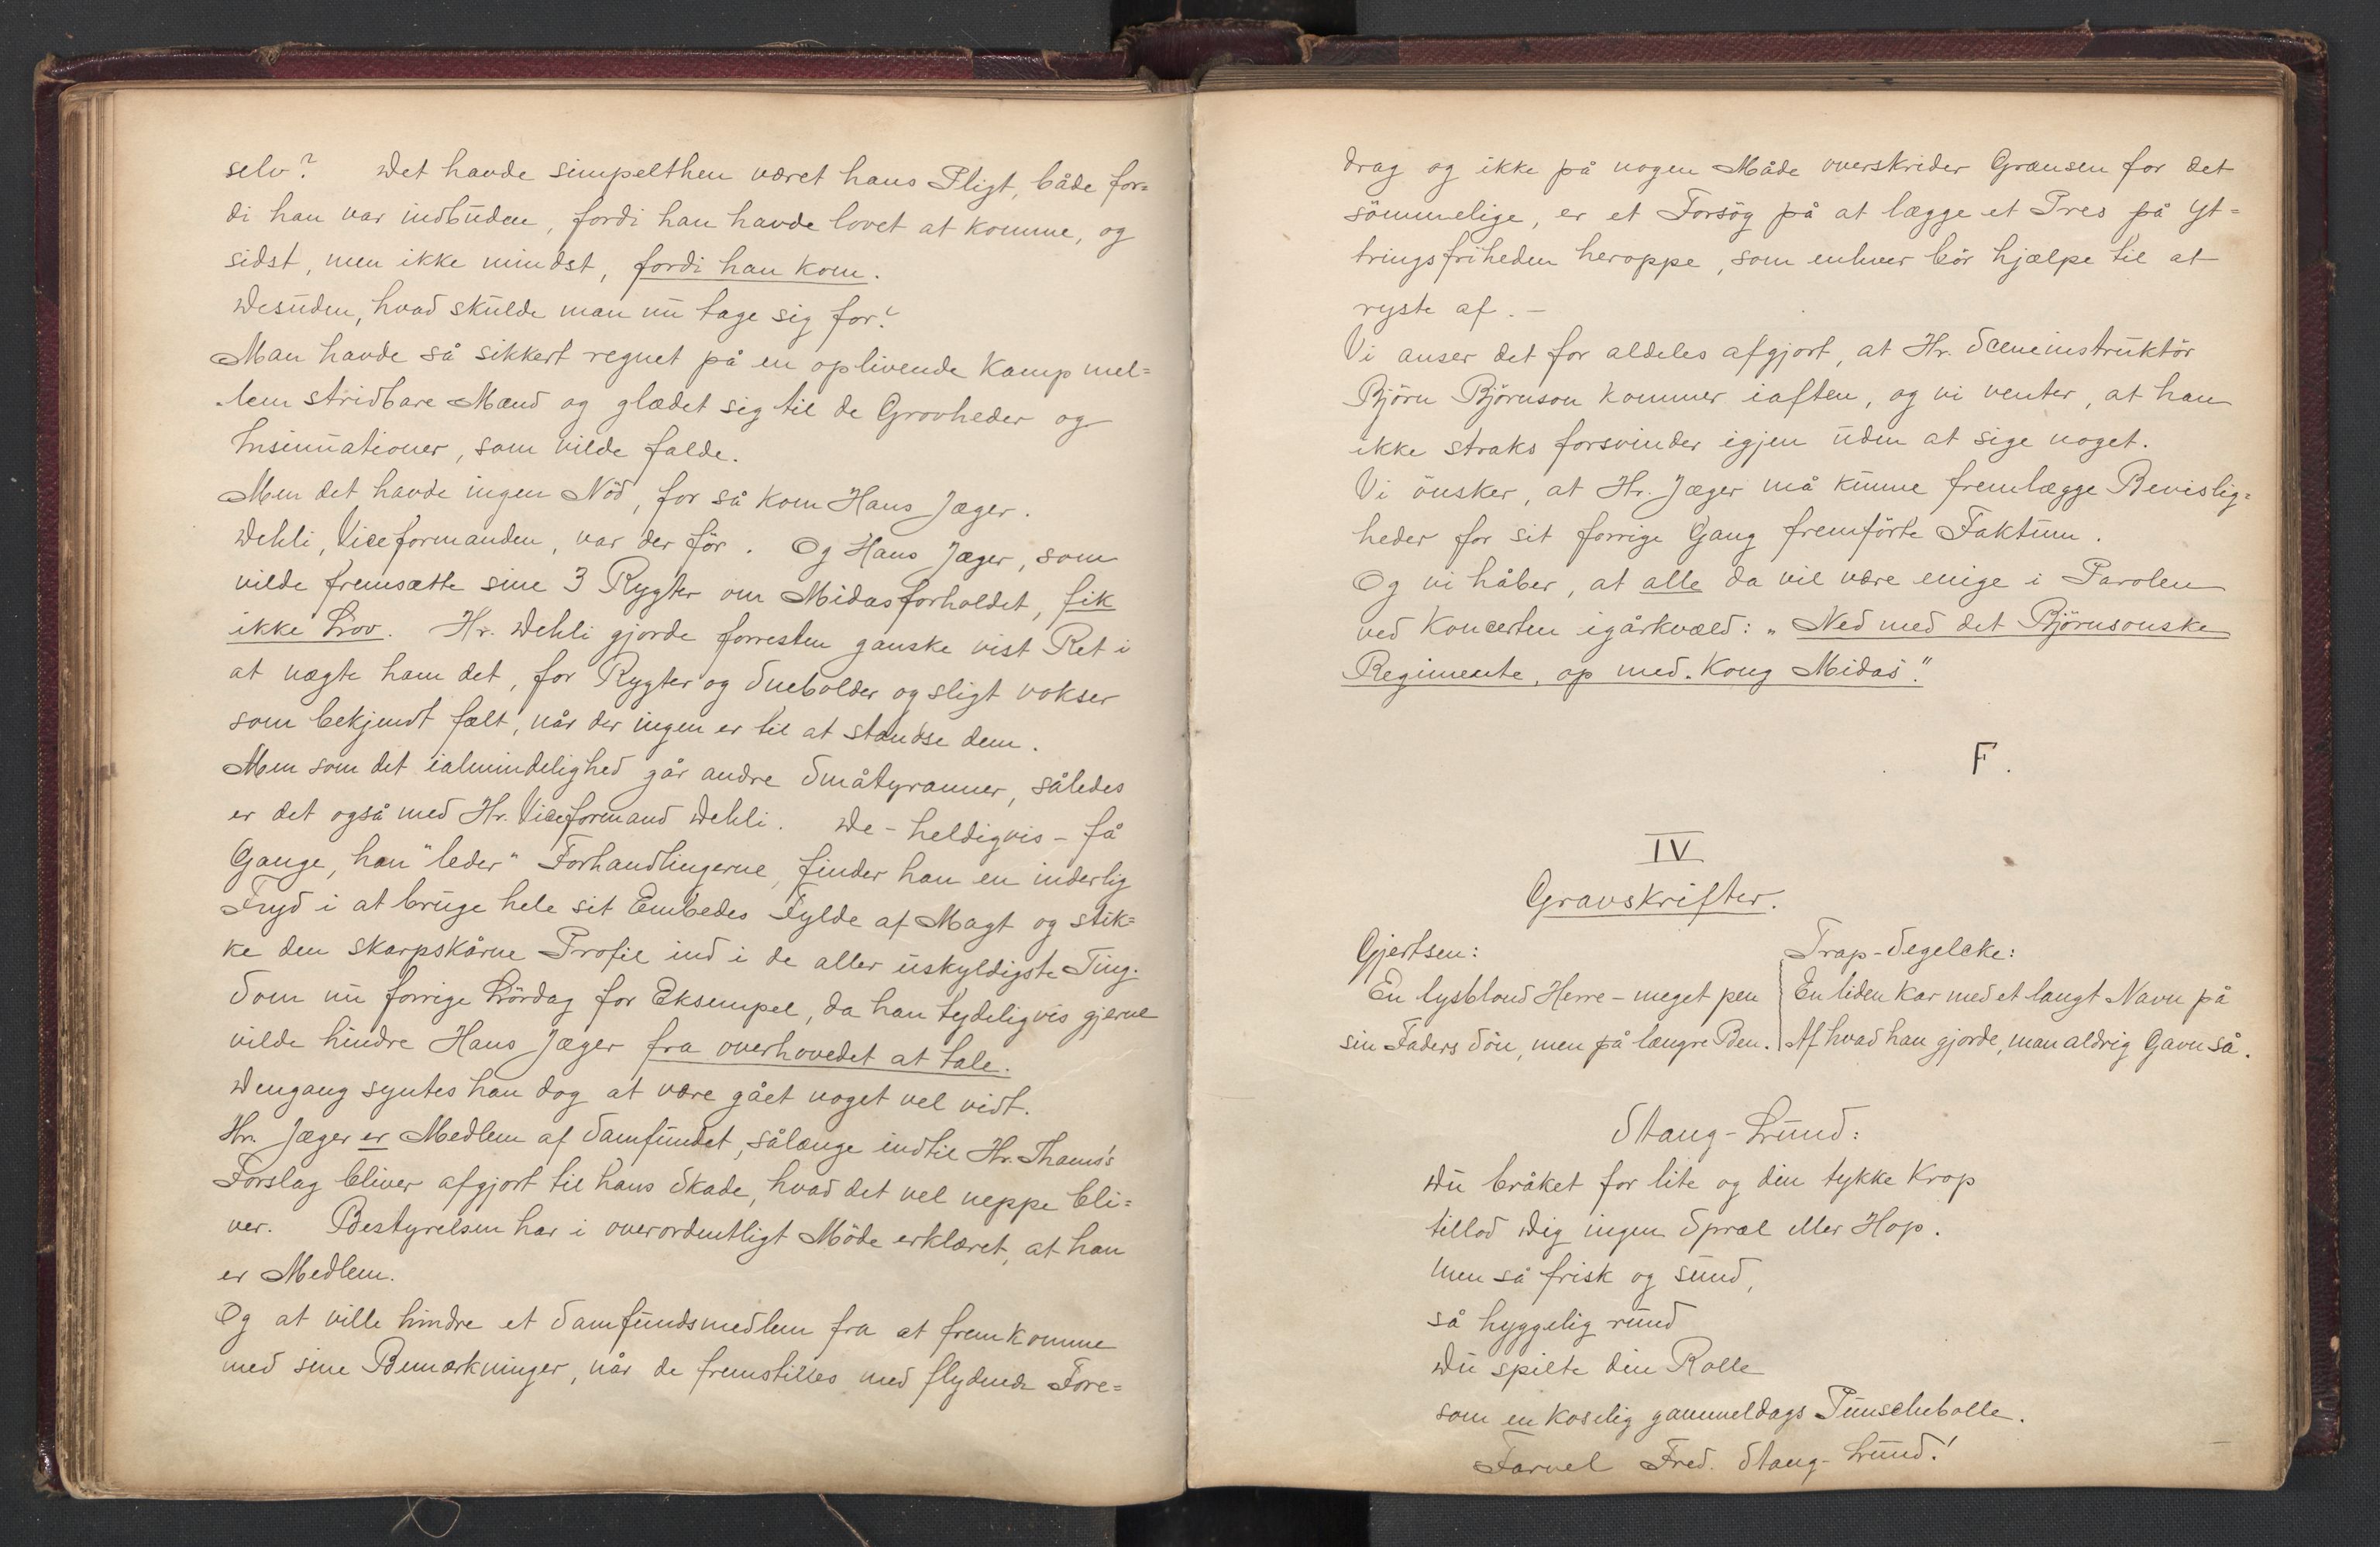 selv? Det havde simpelthen været hans Pligt, både for=
di han var indbuden, fordi han havde lovet at komme, og
sidst, men ikke mindst, fordi han kom.
Desuden, hvad skulde man nu tage sig for?
Man havde så sikkert regnet på en oplivende Kamp mel=
lem stridbare Mænd og glædet sig til de Grovheder og
Insinuationer, som vilde falde.
Men det havde ingen Nöd, for så kom Hans Jæger.
Dehli, Viceformanden, var der för. Og Hans Jæger, som
vilde fremsætte sine 3 Rygter om Midasforholdet, fik
ikke Lov. Hr. Dehli gjorde forresten ganske vist Ret i
at nægte ham det, for Rygter og Snebolder og sligt vokser
som bekjendt fælt, når der ingen er til at standse dem.
Men som det ialmindelighed går andre Småtyranner, således
er det også med Hr. Viceformand Dehli. De - heldigvis - få
Gange, han "leder" Forhandlingerne, finder han en inderlig
Fryd i at bruge hele sit Embedes Fylde af Magt og stik=
ke den skarpskårne Profil ind i de aller uskyldigste Ting.
Som nu forrige Lördag for Eksempel, da han tydeligvis gjerne
vilde hindre Hans Jæger fra overhovedet at tale.
Dengang syntes han dog at være gået noget vel vidt.
Hr. Jæger er Medlem af Samfundet, sålænge indtil Hr. Thams's
Forslag bliver afgjort til hans Skade, hvad det vel neppe bli=
ver. Bestyrelsen har i overordentligt Möde erklæret, at han
er Medlem.
Og at ville hindre et Samfundsmedlem fra at fremkomme
med sine Bemærkninger, når de fremstilles med flydende Fore=
drag og ikke på nogen Måde overskrider Grænsen for det
sömmelige, er et Forsög på at lægge et Pres på Yt=
tringsfriheden heroppe, som enhver bör hjælpe til at
ryste af. -
Vi anser det for aldeles afgjort, at Hr. Sceneinstruktör
Björn Björnson kommer iaften, og vi venter, at han
ikke straks forsvinder igjen uden at sige noget.
Vi önsker, at Hr. Jæger må kunne fremlægge Bevislig=
heder for sit forrige Gang fremförte Faktum.
Og vi håber, at alle da vil være enige i Parolen
ved Koncerten igårkvæld: "Ned med det Björnsonske
Regimente, op med "Kong Midas"."
F.
IV
Gravskrifter.
Gjertsen:
En lysblond Herre - meget pen
sin Faders Sön, men på længre Ben.
Trap-Segelcke:
En liden Kar med et langt Navn på
Af hvad han gjorde, man aldrig Gavn så.
Stang-Lund:
Du bråket for lite og din tykke Krop
tillod Dig ingen Spræl eller Hop.
Men så frisk og sund,
så hyggelig rund
Du spilte din Rolle
som en koselig gammeldags Punschebolle.
Farvel Fred. Stang-Lund!